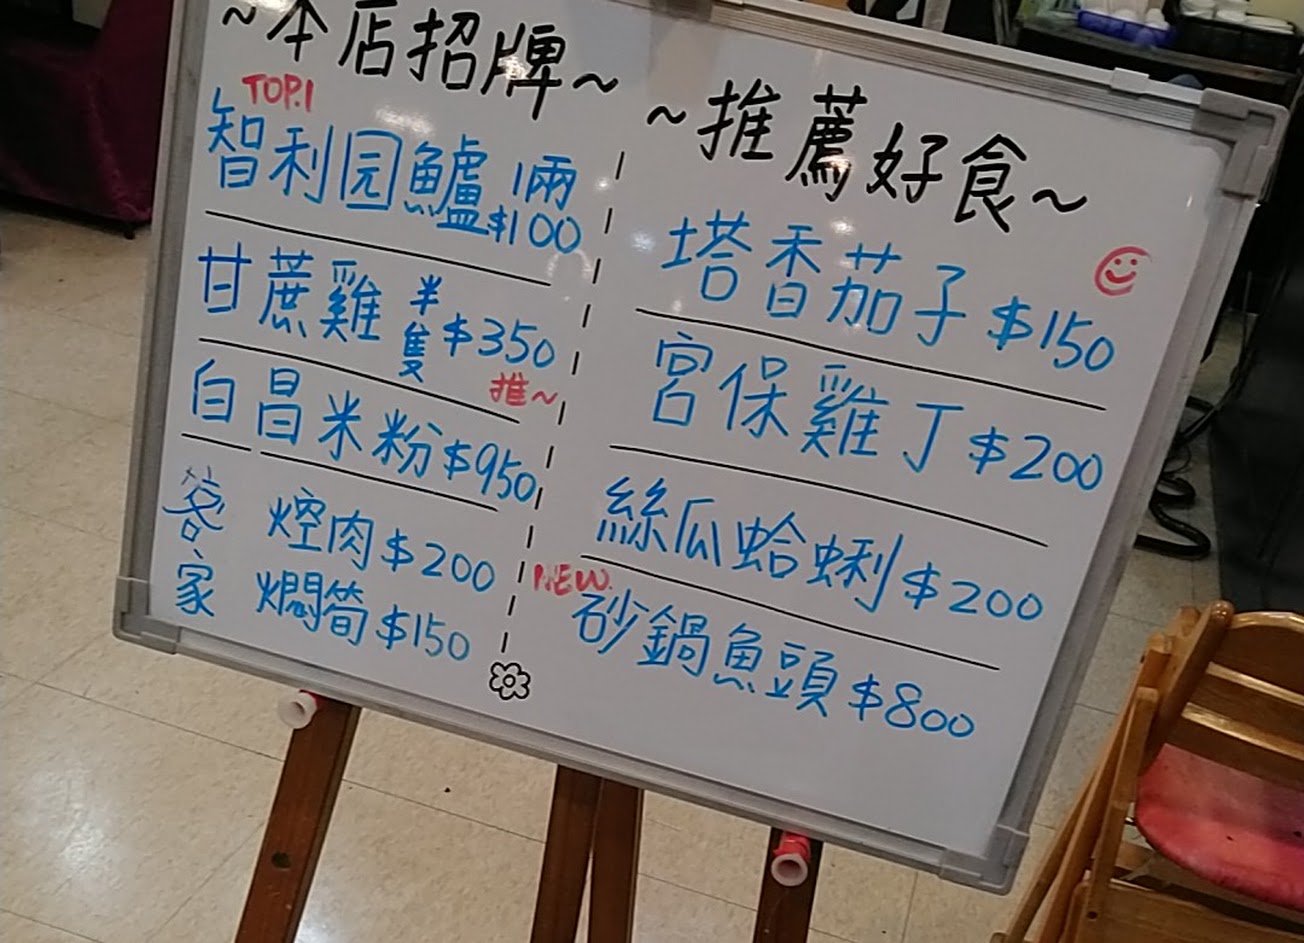 ~本店招牌~
TOP.1
智利园鱸 1兩 $100
甘蔗雞 半隻 $350
推~
白昌米粉 $950
客家
焢肉 $200
燜筍 $150
~推薦好食~
塔香茄子 $150
宮保雞丁 $200
絲瓜蛤蜊 $200
NEW.
砂鍋魚頭 $800